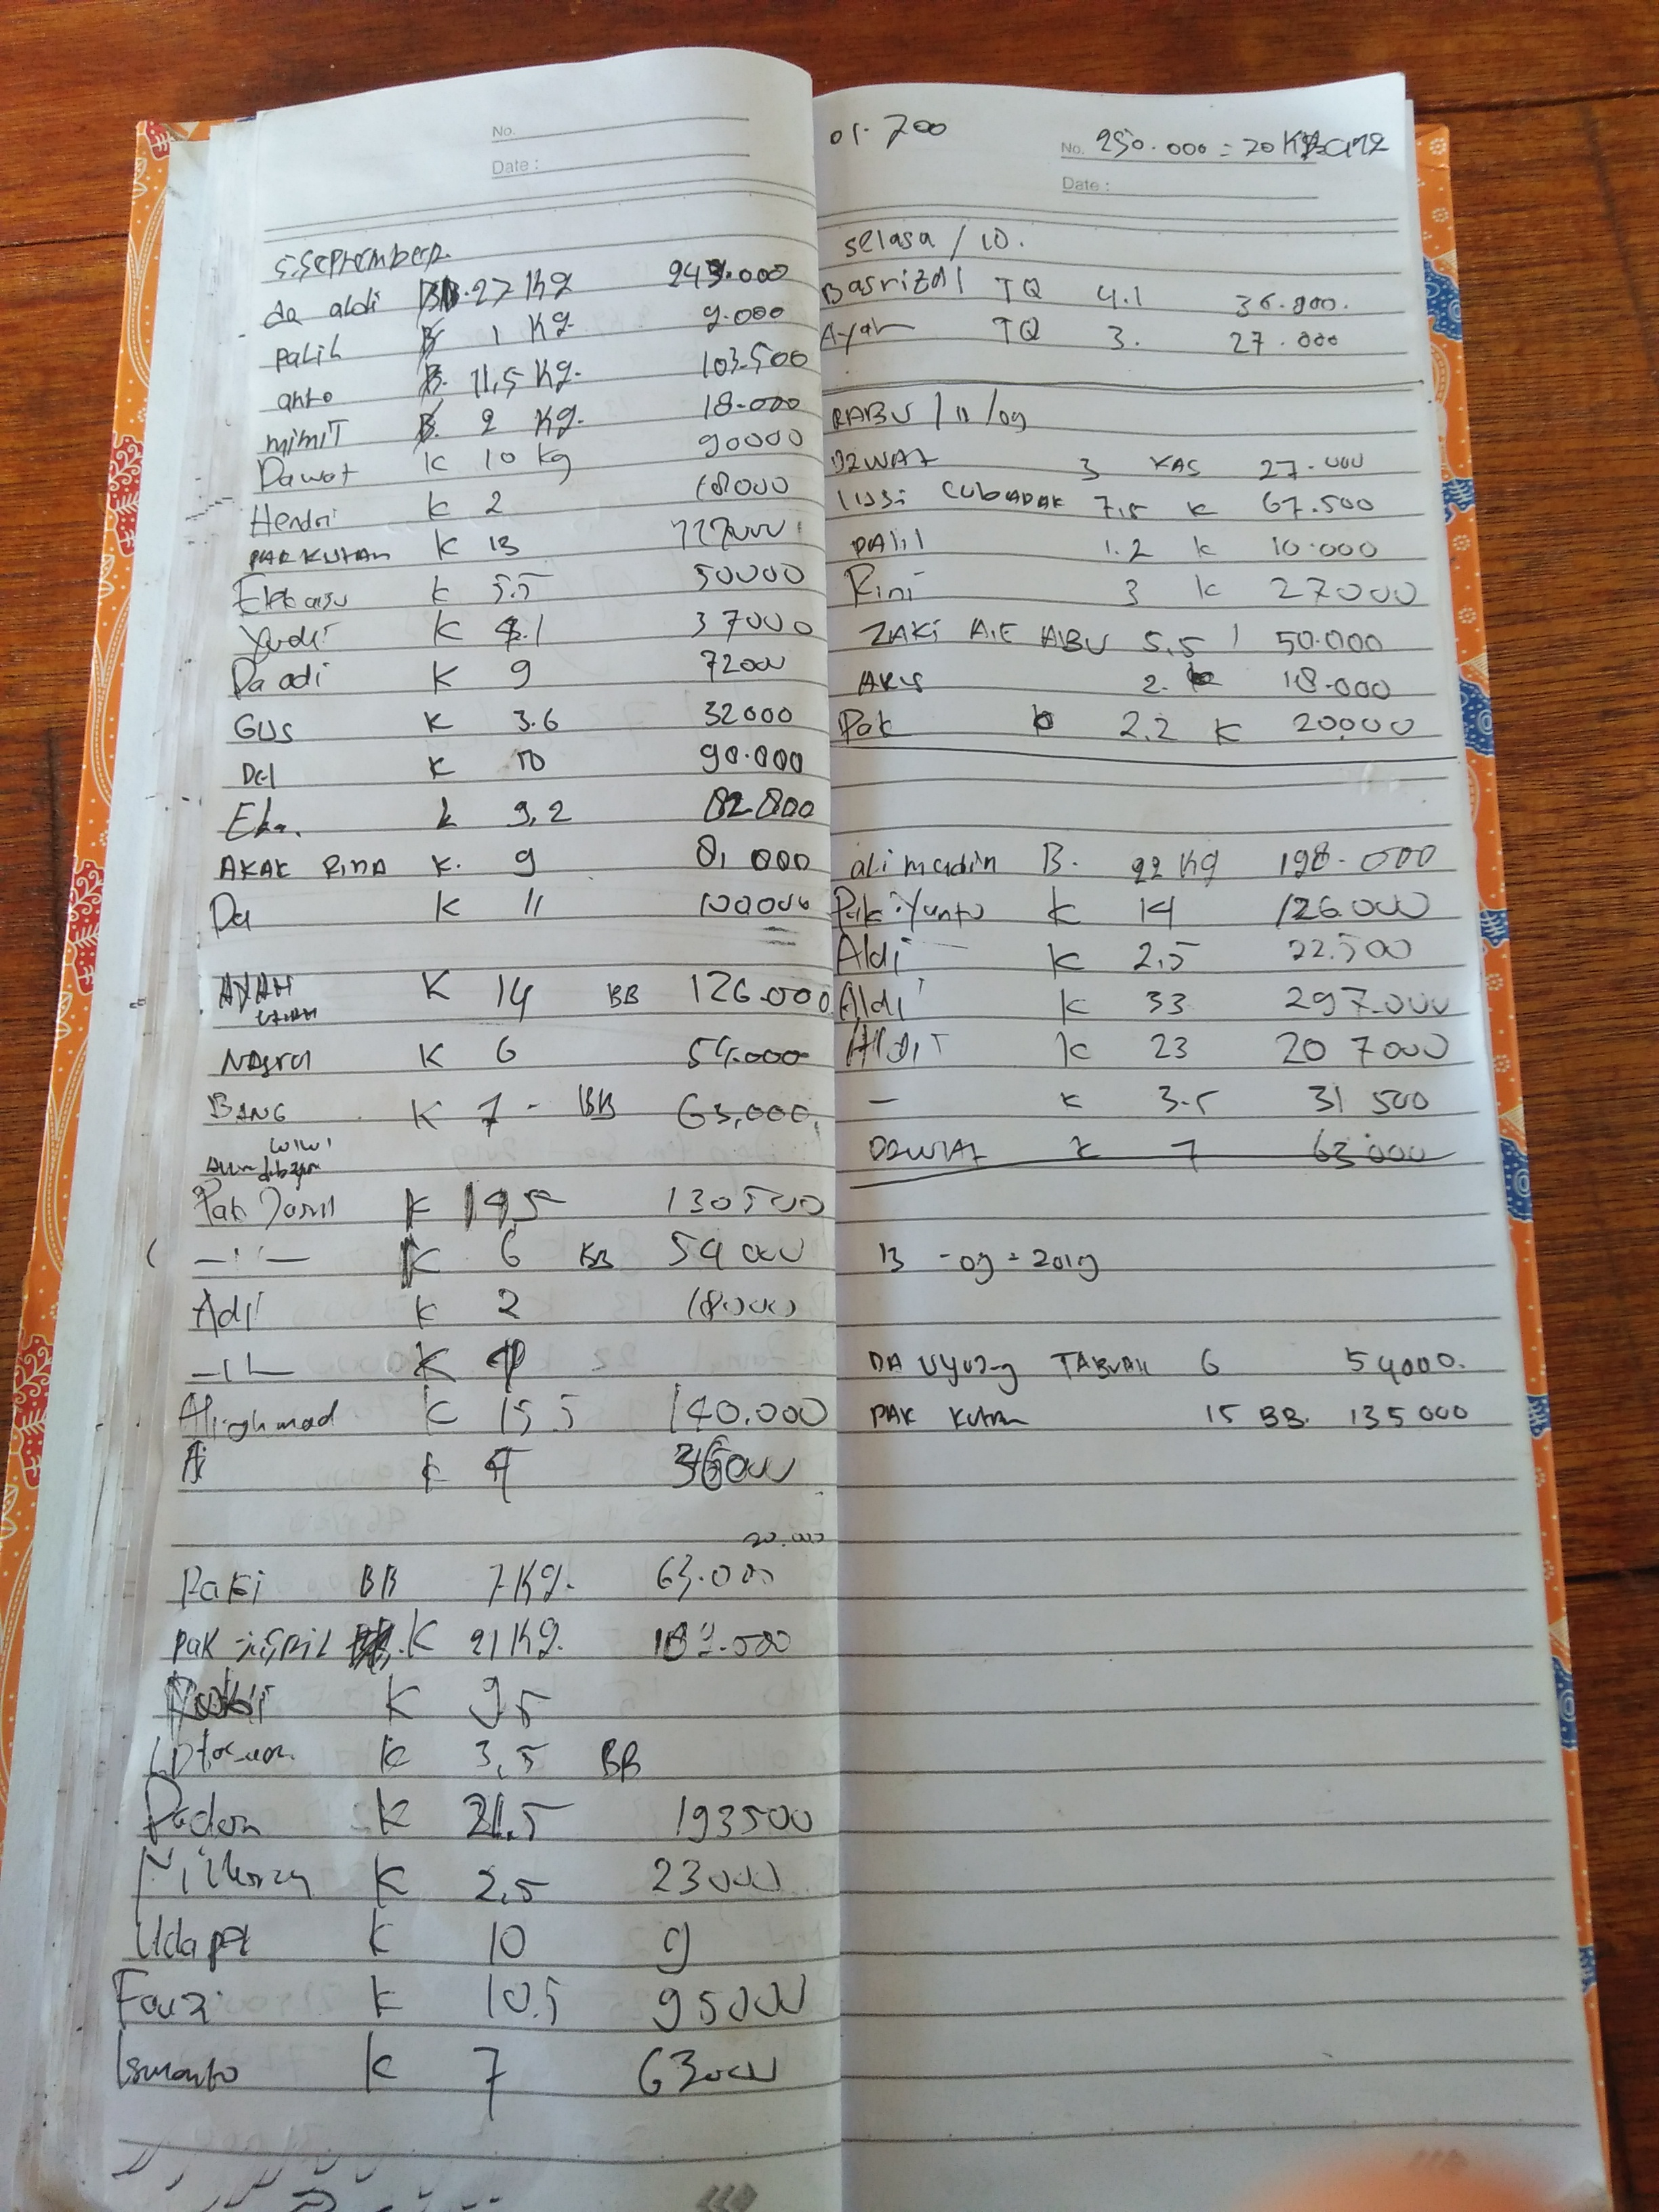 No.
Date :
5.September
da aldi BB. 27 Kg 243.000
palil B 1 Kg. 9.000
anto B. 11,5 Kg. 103.500
mimiT B. 2 Kg. 18.000
Dawat K 10 kg 90000
Hendri K 2 18000
PAK KUTAN K 13 117000
K 5.5 50000
Yudi K 4.1 37000
Da adi K 9 72000
GUS K 3.6 32000
Del K 10 90.000
Eka. k 9,2 82.800
AKAK RINA K. 9 81 000
Da K 11 100000
AYAH K 14 BB 126.000
K 6 54.000
BANG K 7 - BB 63,000,
wiwi
Pak K 14,5 130500
—"— K 6 BB 54000
Adi K 2 18000
K 4
Aliahmad K 15.5 140.000
A K 4 36000
20.000
Paki BB 7 Kg. 63.000
Pak K 21 Kg. 189.000
K 95
K 3,5 BB
K 21.5 193500
K 2,5 23000
Uda K 10 9
Fauzi K 10.5 95000
Ismanto K 7 63000
01.700
No. 250.000 = 20 Kg
Date :
selasa / 10.
Basrizal TQ 4.1 36.900.
Ayah TQ 3. 27.000
RABU / 11 / 09
DEWAT 3 KAS 27.000
lusi CUbADAK 7,5 K 67.500
PAlil 1.2 k 10.000
Rini 3 k 27000
ZAKi AIE ABU 5,5 50.000
AKIS 2. k 18.000
Pak 2.2 K 20000
alimudin B. 22 Kg 198.000
Pak Yanto K 14 126.000
Aldi K 2,5 22.500
Aldi K 33 297.000
AldiT K 23 207000
— K 3.5 31 500
DEWAT K 7 63.000
13 - 09 - 2019
DA Uyung TABUAH 6 54000.
PAK Kutan 15 BB. 135000